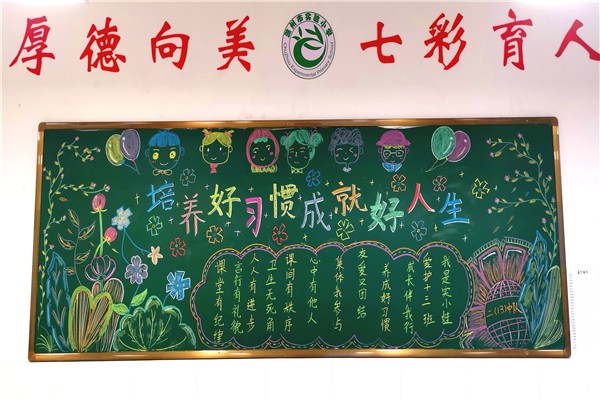 厚德向美 七彩育人
培养好习惯成就好人生
我是实小娃
爱护十三班
成长伴我行
养成好习惯
友爱又团结
集体我参与
心中有他人
课间有秩序
卫生无死角
人人有进步
言行有礼貌
课堂有纪律
二(13)中队